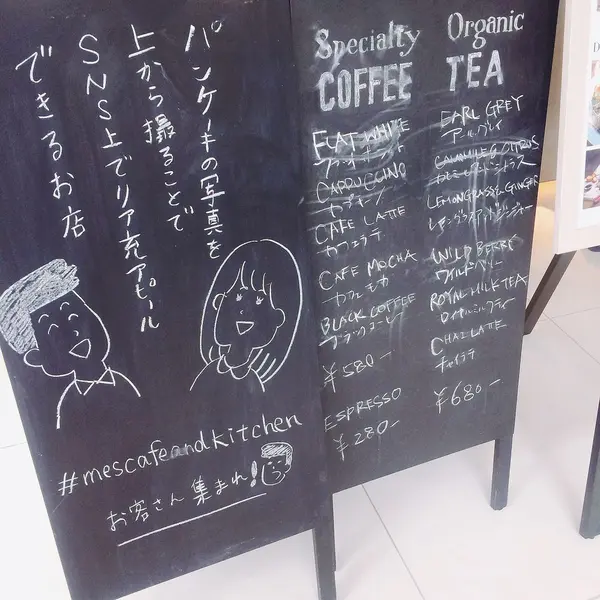 パンケーキの写真を
上から撮ることで
SNS上でリア充アピール
できるお店
#mescafeandkitchen
お客さん集まれ!
Specialty
COFFEE
FLAT WHITE
フラットホワイト
CAPPUCCINO
カプチーノ
CAFE LATTE
カフェラテ
CAFE MOCHA
カフェモカ
BLACK COFFEE
ブラックコーヒー
¥580-
ESPRESSO
¥280-
Organic
TEA
EARL GREY
アールグレイ
CAMOMILE & CITRUS
カモミールシトラス
LEMONGRASS & GINGER
レモングラスアンドジンジャー
WILD BERRY
ワイルドベリー
ROYAL MILK TEA
ロイヤルミルクティー
CHAI LATTE
チャイラテ
¥680-